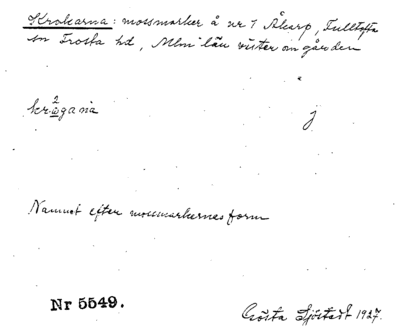 Krokarna: mossmarker å nr 1 Åkarp, Fulltofta
sn Frosta hd, Mlm. län väster om gården
j
Namnet efter mossmarkernes form
Nr 5549.
Gösta Sjöstedt 1927.